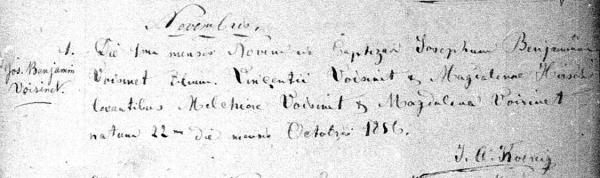 Novembris.
1. Die 1ma mensis Novembris baptizavi Josephum Benjaminum
Jos. Benjamin
Voisinet.
Voisinet filium Vincentii Voisinet & Magdalenae Hirsch
levantibus Melchiore Voisinet & Magdalena Voisinet
natum 22ma die mensis Octobris 1856.
J. A. Koenig